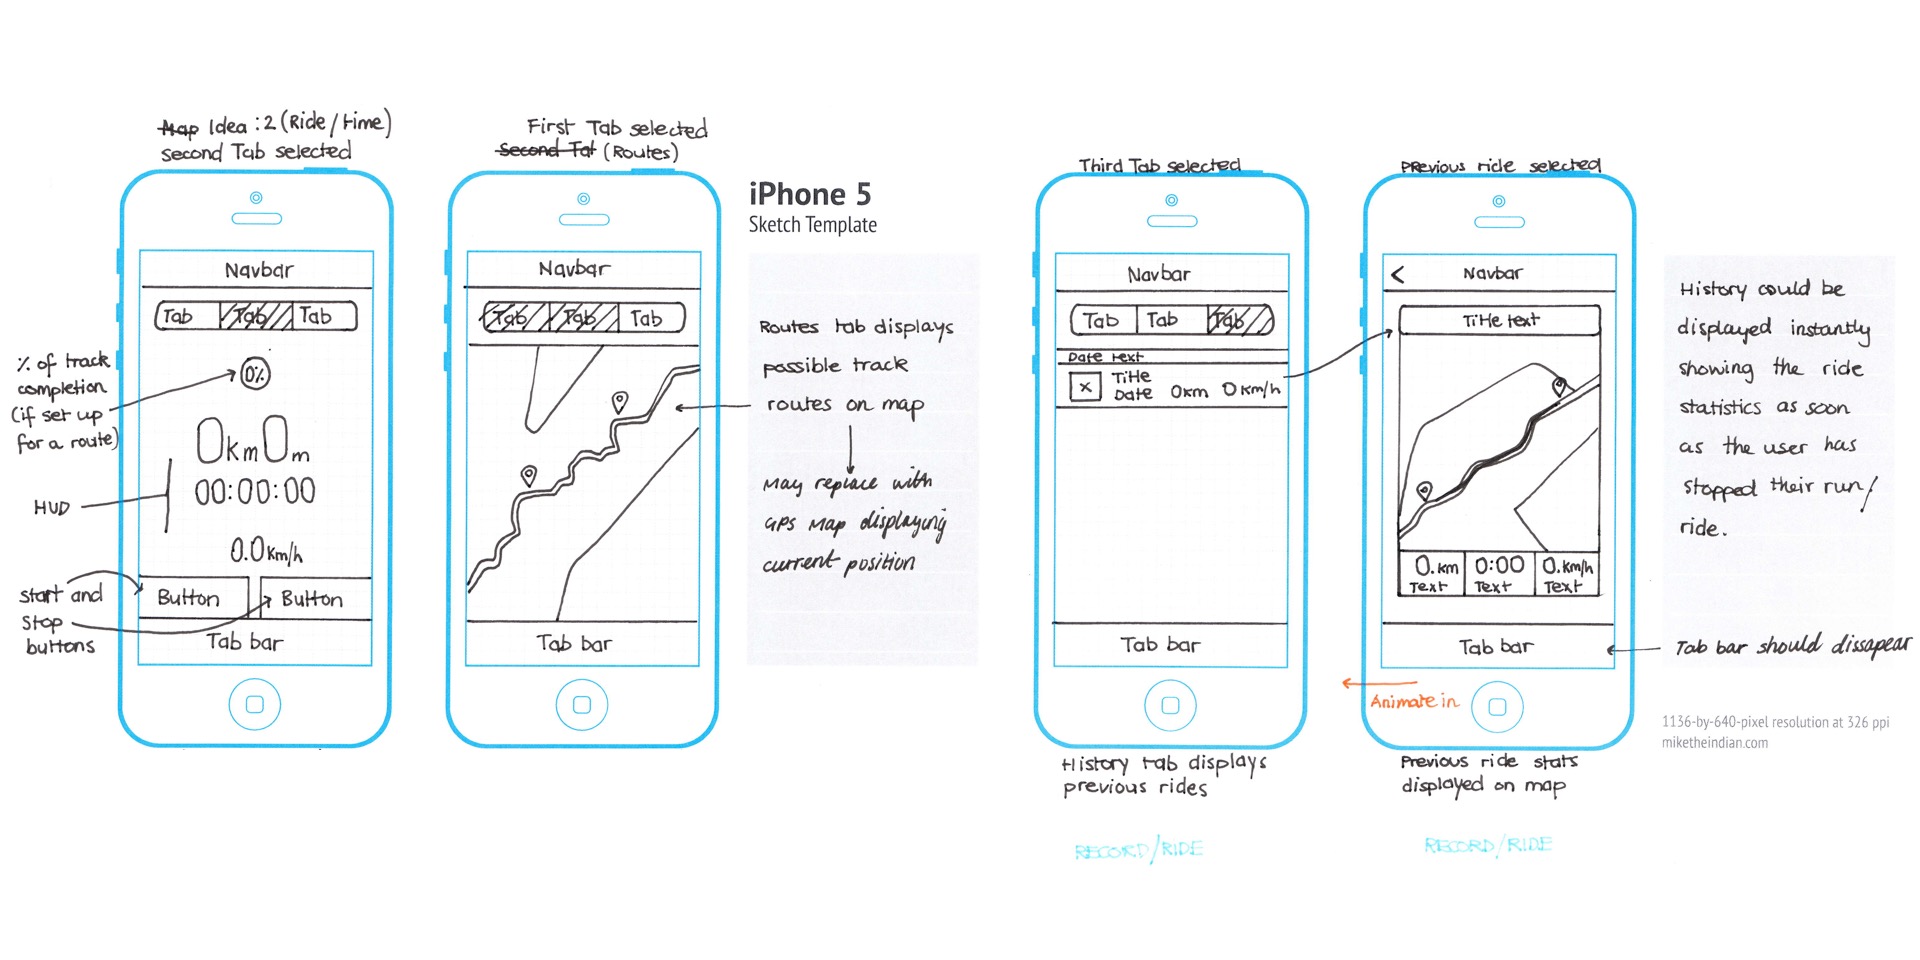 Map Idea : 2 (Ride/time)
Second Tab selected
Navbar
Tab Tab Tab
% of track
completion
(if set up
for a route)
0%
0km 0m
00:00:00
HUD
0.0 km/h
Start and
Stop
buttons
Button Button
Tab bar
First Tab selected
Second Tab (Routes)
Navbar
Tab Tab Tab
Tab bar
iPhone 5
Sketch Template
Routes tab displays
possible track
routes on map
May replace with
GPS Map displaying
current position
Third Tab selected
Navbar
Tab Tab Tab
Date text
x
Title
Date 0km 0km/h
Tab bar
History tab displays
previous rides
RECORD/RIDE
Previous ride selected
< Navbar
Title text
0.km 0:00 0.km/h
Text Text Text
Tab bar
Animate in
Previous ride stats
displayed on map
RECORD/RIDE
History could be
displayed instantly
showing the ride
statistics as soon
as the user has
stopped their run/
ride.
Tab bar should dissapear
1136-by-640-pixel resolution at 326 ppi
miketheindian.com